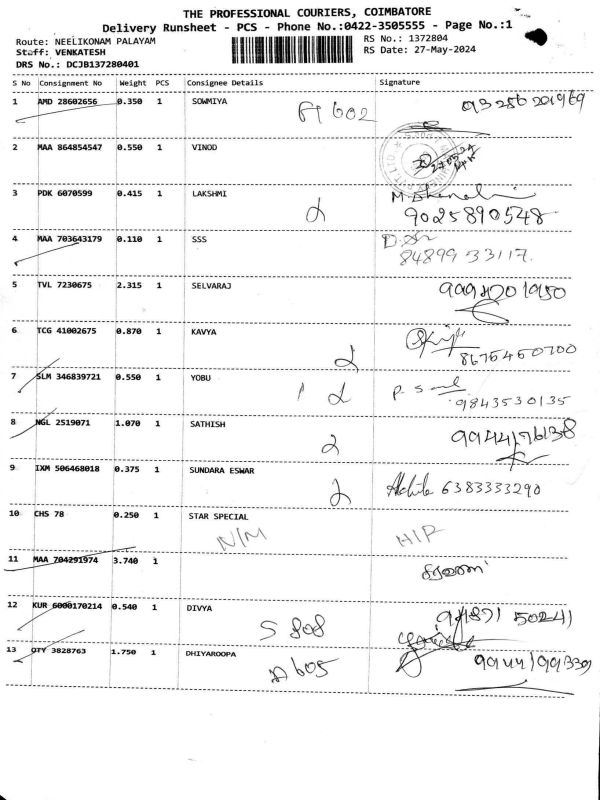 THE PROFESSIONAL COURIERS, COIMBATORE
Delivery Runsheet - PCS - Phone No.:0422-3505555 - Page No.:1
Route: NEELIKONAM PALAYAM
Staff: VENKATESH
DRS No.: DCJB137280401
RS No.: 1372804
RS Date: 27-May-2024
S No Consignment No Weight PCS Consignee Details Signature
1 AMD 28602656 0.350 1 SOWMIYA G1 602 9325620 1969
2 MAA 864854547 0.550 1 VINOD
3 PDK 6070599 0.415 1 LAKSHMI 2
9025890548
4 MAA 703643179 0.110 1 SSS
84899 33117
5 TVL 7230675 2.315 1 SELVARAJ
6 TCG 41002675 0.870 1 KAVYA 2
8676460700
7 SLM 346839721 0.550 1 YOBU 1 2
9843530135
8 NGL 2519071 1.070 1 SATHISH 2 9944176138
9 IXM 506468018 0.375 1 SUNDARA ESWAR 2 6383333290
10 CHS 78 0.250 1 STAR SPECIAL
N/M H/R
11 MAA 704291974 3.740 1 சரவணன்
12 KUR 6000170214 0.540 1 DIVYA S 808 94871 50241
13 QTY 3828763 1.750 1 DHIYAROOPA A 605 99441 99339